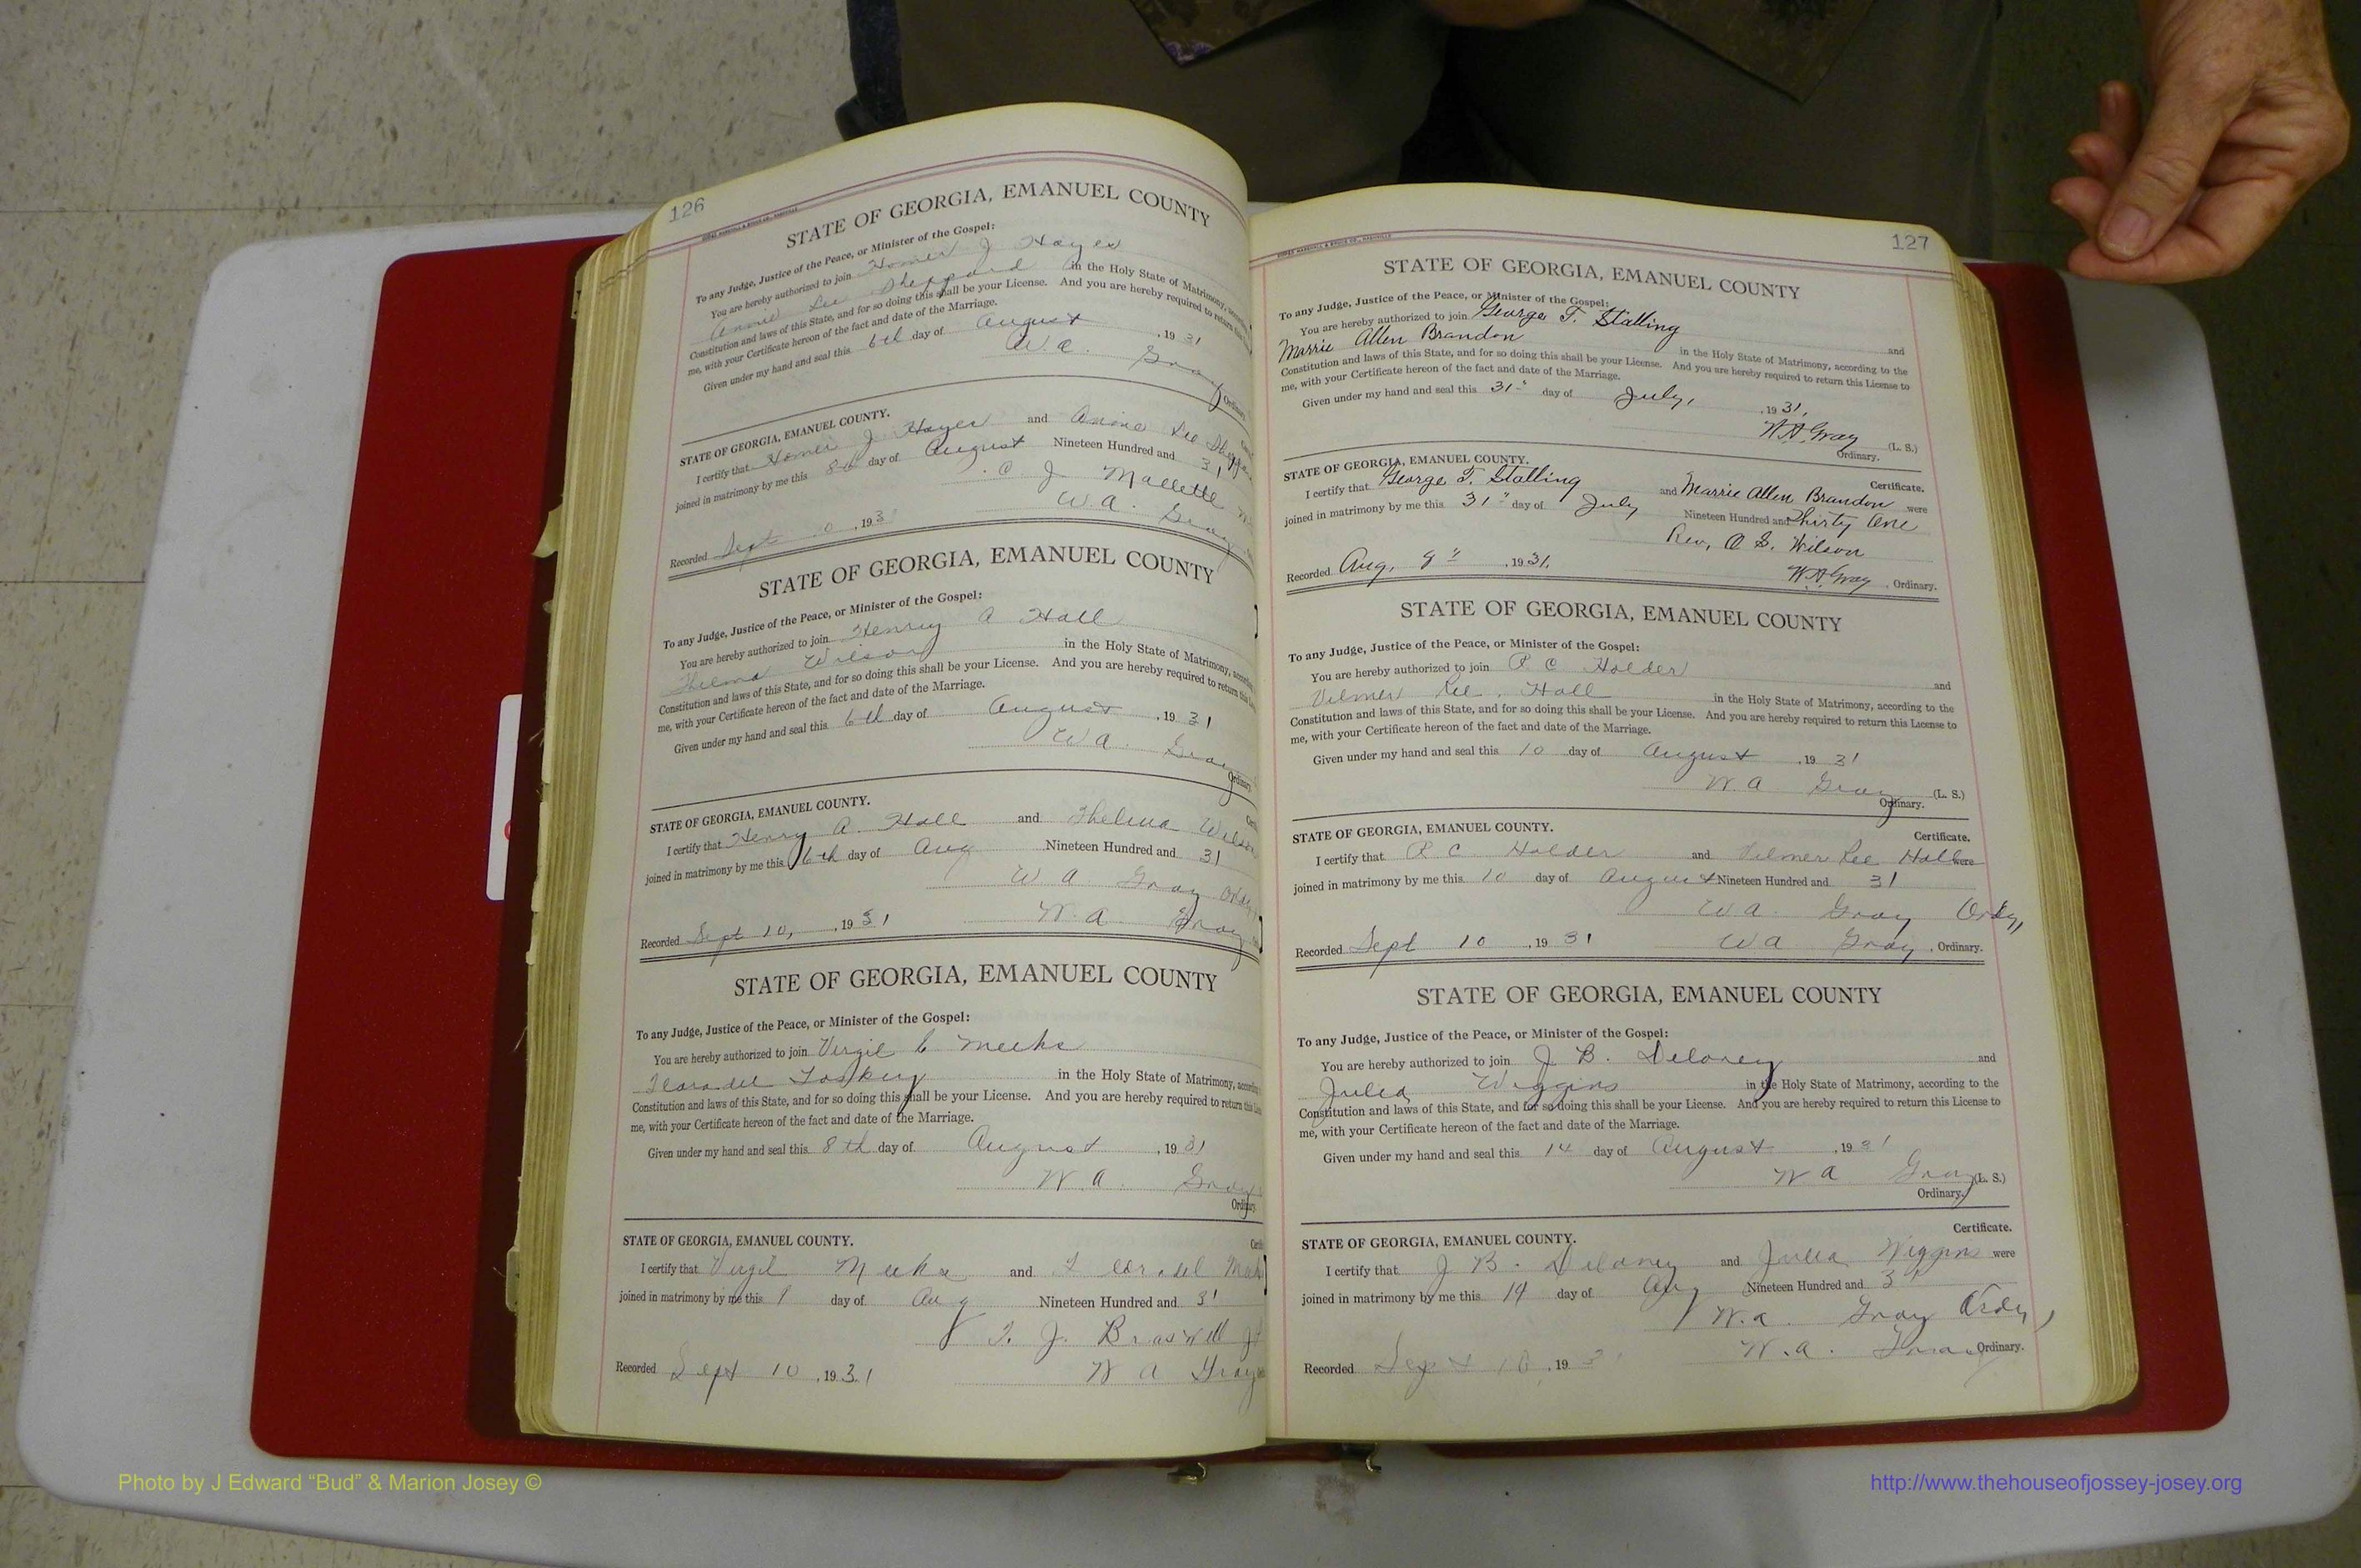 126
STATE OF GEORGIA, EMANUEL COUNTY
To any Judge, Justice of the Peace, or Minister of the Gospel:
You are hereby authorized to join Homer J. Hayes
Annie Lee Sheppard in the Holy State of Matrimony,
Constitution and laws of this State, and for so doing this shall be your License. And you are hereby required to return this
me, with your Certificate hereon of the fact and date of the Marriage.
Given under my hand and seal this 6th day of August , 19 31
W. A. Gray
Ordinary.
STATE OF GEORGIA, EMANUEL COUNTY.
I certify that Homer J Hayes and Annie Lee
joined in matrimony by me this 8th day of August Nineteen Hundred and 31
C J Mallette
W. A. Gray
Recorded Sept , 193
STATE OF GEORGIA, EMANUEL COUNTY
To any Judge, Justice of the Peace, or Minister of the Gospel:
You are hereby authorized to join Henry A Hall
Thelma Wilson in the Holy State of Matrimony,
Constitution and laws of this State, and for so doing this shall be your License. And you are hereby required to return this
me, with your Certificate hereon of the fact and date of the Marriage.
Given under my hand and seal this 6th day of August , 19 31
W. A. Gray
Ordinary.
STATE OF GEORGIA, EMANUEL COUNTY.
I certify that Henry A. Hall and Thelma Wilson
joined in matrimony by me this 6th day of Aug Nineteen Hundred and 31
W A Gray
Recorded Sept 10, , 19 31 W. A Gray
STATE OF GEORGIA, EMANUEL COUNTY
To any Judge, Justice of the Peace, or Minister of the Gospel:
You are hereby authorized to join Virgil C Meeks
in the Holy State of Matrimony,
Constitution and laws of this State, and for so doing this shall be your License. And you are hereby required to return this
me, with your Certificate hereon of the fact and date of the Marriage.
Given under my hand and seal this 8th day of August , 19 31
W. A. Gray
Ordinary.
STATE OF GEORGIA, EMANUEL COUNTY.
I certify that Virgil Meeks and
joined in matrimony by me this day of Aug Nineteen Hundred and 31
J. Braswell
Recorded Sept 10 , 19 31 W A Gray
127
STATE OF GEORGIA, EMANUEL COUNTY
To any Judge, Justice of the Peace, or Minister of the Gospel:
You are hereby authorized to join George T. Stalling and
Marrie Allen Brandon in the Holy State of Matrimony, according to the
Constitution and laws of this State, and for so doing this shall be your License. And you are hereby required to return this License to
me, with your Certificate hereon of the fact and date of the Marriage.
Given under my hand and seal this 31" day of July, , 19 31,
W.A. Gray (L. S.)
Ordinary.
STATE OF GEORGIA, EMANUEL COUNTY. Certificate.
I certify that George T. Stalling and Marrie Allen Brandon were
joined in matrimony by me this 31" day of July Nineteen Hundred and Thirty One
Rev, S. Wilson
Recorded Aug, , 19 31, W.A. Gray , Ordinary.
STATE OF GEORGIA, EMANUEL COUNTY
To any Judge, Justice of the Peace, or Minister of the Gospel:
You are hereby authorized to join R C Holder and
Vilmer Lee Hall in the Holy State of Matrimony, according to the
Constitution and laws of this State, and for so doing this shall be your License. And you are hereby required to return this License to
me, with your Certificate hereon of the fact and date of the Marriage.
Given under my hand and seal this 10 day of August , 19 31
W A Gray (L. S.)
Ordinary.
STATE OF GEORGIA, EMANUEL COUNTY. Certificate.
I certify that R C Holder and Vilmer Lee Hall were
joined in matrimony by me this 10 day of August Nineteen Hundred and 31
W A. Gray Ordy,
Recorded Sept 10 , 19 31 W A Gray , Ordinary.
STATE OF GEORGIA, EMANUEL COUNTY
To any Judge, Justice of the Peace, or Minister of the Gospel:
You are hereby authorized to join J. B. Deloney and
Julia Wiggins in the Holy State of Matrimony, according to the
Constitution and laws of this State, and for so doing this shall be your License. And you are hereby required to return this License to
me, with your Certificate hereon of the fact and date of the Marriage.
Given under my hand and seal this 14 day of August , 19 31
W A Gray (L. S.)
Ordinary.
STATE OF GEORGIA, EMANUEL COUNTY. Certificate.
I certify that J B. Deloney and Julia Wiggins were
joined in matrimony by me this 14 day of Aug Nineteen Hundred and 31
W. A. Gray Ordy,
Recorded Sept 10 , 19 3 W. A. Gray Ordinary.
Photo by J Edward “Bud” & Marion Josey ©
http://www.thehouseofjossey-josey.org